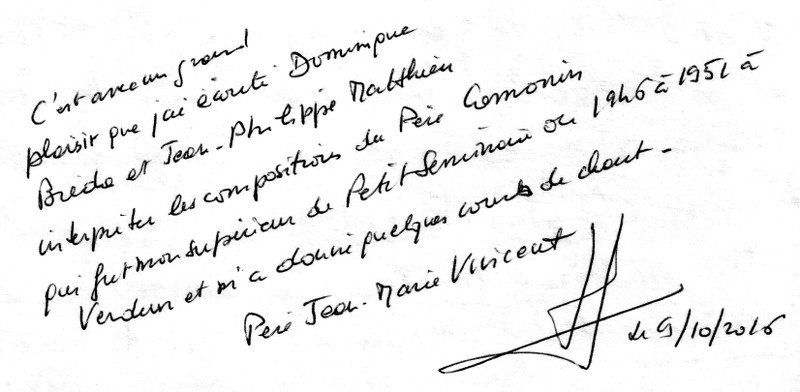 C'est avec un grand
plaisir que j'ai écouté Dominique
Bréda et Jean-Philippe Matthieu
interpréter les compositions du Père
qui fut mon supérieur de Petit Séminaire de 1946 à 1951 à
Verdun et m'a donné quelques cours de chant.
Père Jean-Marie Vincent
le 9/10/2016